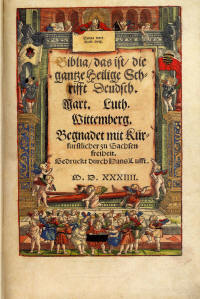 Biblia / das ist / die
gantze Heilige Sch-
rifft Deudsch.
Mart. Luth.
Wittemberg.
Begnadet mit Kür-
fürstlicher zu Sachsen
freiheit.
Gedruckt durch Hans Lufft.
M. D. XXXIIII.